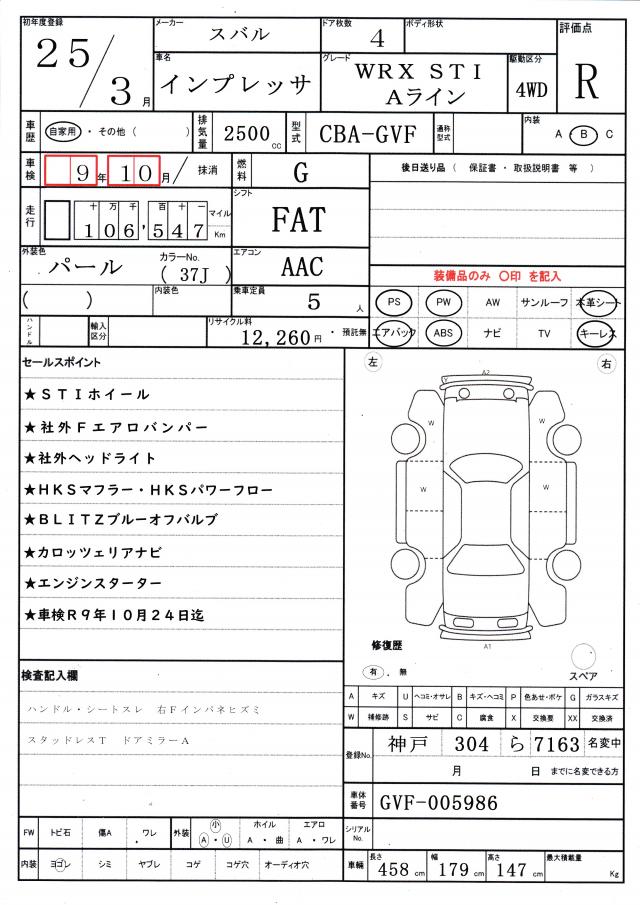 初年度登録 25/3月
メーカー スバル
ドア枚数 4
ボディ形状
評価点 R
車名 インプレッサ
グレード WRX STI Aライン
駆動区分 4WD
車歴 自家用 ・ その他 ( )
排気量 2500cc
型式 CBA-GVF
通称型式
内装 A ・ B ・ C
車検 9年 10月 / 抹消
燃料 G
後日送り品 ( 保証書 ・ 取扱説明書 等 )
走行 十万千百十一 106,547 マイル Km
シフト FAT
外装色 パール
カラーNo. ( 37J )
エアコン AAC
装備品のみ 〇印 を記入
( )
内装色
乗車定員 5人
PS PW AW サンルーフ 本革シート
ハンドル
輸入区分
リサイクル料 12,260円 ・ 預託無
エアバック ABS ナビ TV キーレス
セールスポイント
★STIホイール
★社外Fエアロバンパー
★社外ヘッドライト
★HKSマフラー・HKSパワーフロー
★BLITZブルーオフバルブ
★カロッツェリアナビ
★エンジンスターター
★車検R9年10月24日迄
左 右
A2
W W
W W
A1
修復歴
有 . 無
スペア
検査記入欄
ハンドル・シートスレ 右Fインパネヒズミ
スタッドレスT ドアミラーA
A キズ U ヘコミ・オサレ B キズ・ヘコミ P 色あせ・ボケ G ガラスキズ
W 補修跡 S サビ C 腐食 X 交換要 XX 交換済
登録No. 神戸 304 ら 7163 名変中
月 日 までに名変できる方
車体番号 GVF-005986
シリアルNo.
FW トビ石 傷A ワレ 外装 小 A ・ U ホイル A ・ 曲 エアロ A ・ ワレ
内装 ヨゴレ シミ ヤブレ コゲ コゲ穴 オーディオ穴
車輌 長さ 458cm 幅 179cm 高さ 147cm 最大積載量 Kg